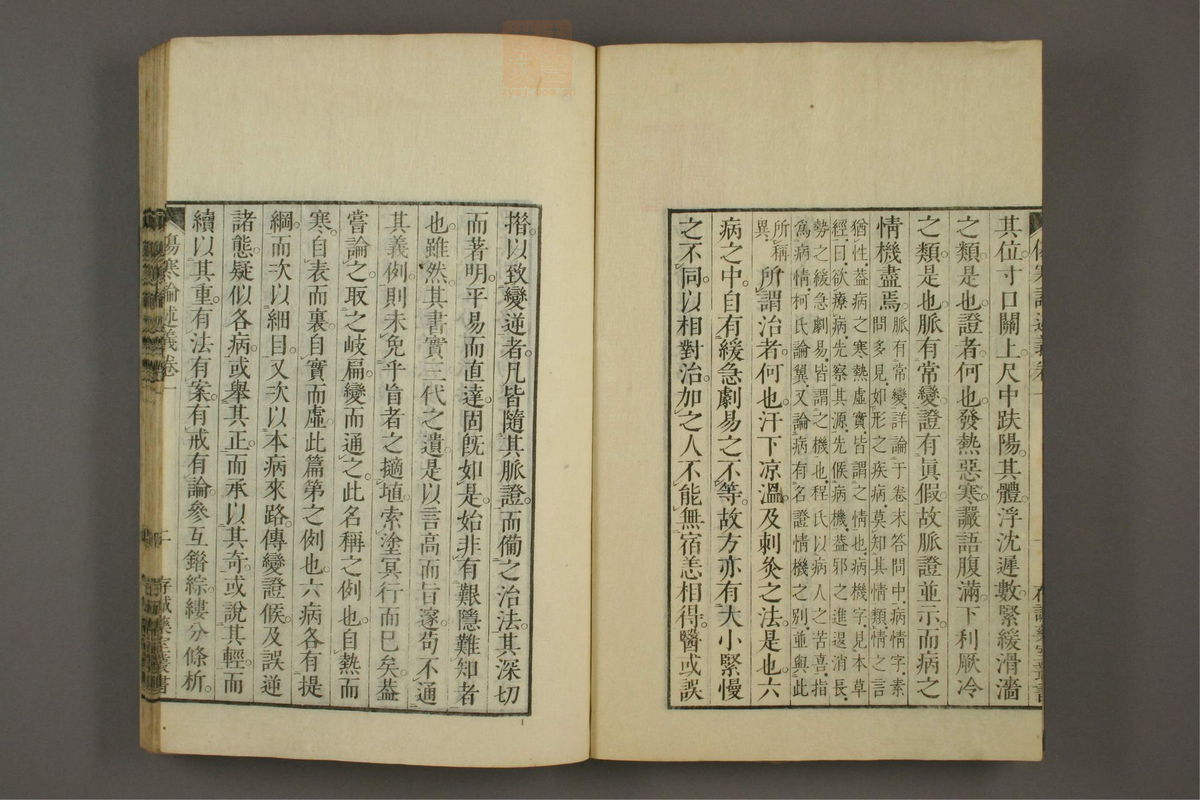 其位寸口關上尺中趺陽其體浮沈遲數緊緩滑濇
之類是也證者何也發熱惡寒讝語腹滿下利厥冷
之類是也脈有常變證有眞假故脈證並示而病之
情機盡焉脈有常變詳論于卷末答問中病情字素
問多見如形之疾病莫知其情類情之言
猶性蓋病之寒熱虛實皆謂之情也病機字見本草
經曰欲療病先察其源先候病機蓋邪之進退消長
勢之緩急劇易皆謂之機也程氏以病人之苦喜指
爲病情柯氏論翼又論病有名證情機之別並與此
所稱
異所謂治者何也汗下凉溫及刺灸之法是也六
病之中自有緩急劇易之不等故方亦有大小緊慢
之不同以相對治加之人不能無宿恙相得醫或誤
措以致變逆者凡皆隨其脈證而備之治法其深切
而著明平易而直達固旣如是始非有艱隱難知者
也雖然其書實三代之遺是以言高而旨邃茍不通
其義例則未免乎旨者之擿埴索塗冥行而巳矣蓋
嘗論之取之岐扁變而通之此名稱之例也自熱而
寒自表而裏自實而虛此篇第之例也六病各有提
綱而次以細目又次以本病來路傳變證候及誤逆
諸態疑似各病或舉其正而承以其奇或說其輕而
續以其重有法有案有戒有論參互錯綜縷分條析
傷寒論述義卷一
二
存誠藥室叢書